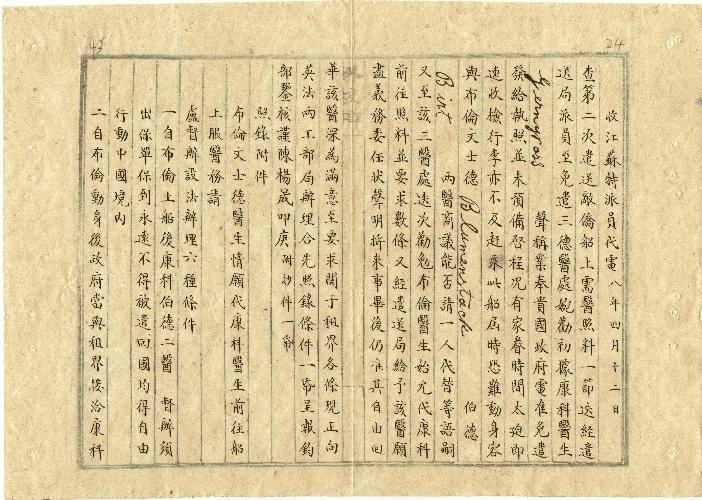 43
24
收江蘇特派員代電 八年四月十二日
查第二次遣送敵僑船上需醫照料一節送經遣
送局派員至免遣三德醫處婉勸初據康科醫生
聲稱業奉貴國政府電准免遣
發給執照並未預備啓程況有家眷時間太迫即
速收檢行李亦不及赶乘此船屆時恐難動身容
與布倫文士德 Blumenstock 伯德
Birt 兩醫商議能否請一人代替等語嗣
又至該三醫處迭次勸勉布倫醫生始允代康科
前往照料並要求數條又經遣送局給予該醫願
盡義務委任狀聲明將來事畢後仍准其自由回
華該醫深為滿意至要求關于租界各條現正向
英法兩工部局辦理合先照錄條件一帋呈報鈞
部鑒核謹陳楊晟叩庚 附抄件一帋
照錄附件
布倫文士德醫生情願代康科醫生前往船
上服醫務請
處督辦設法辦理六種條件
一自布倫上船後康科伯德二醫 督辦須
出保單保到永遠不得被遣回國均得自由
行動中國境内
二自布倫動身後政府當與租界接洽康科